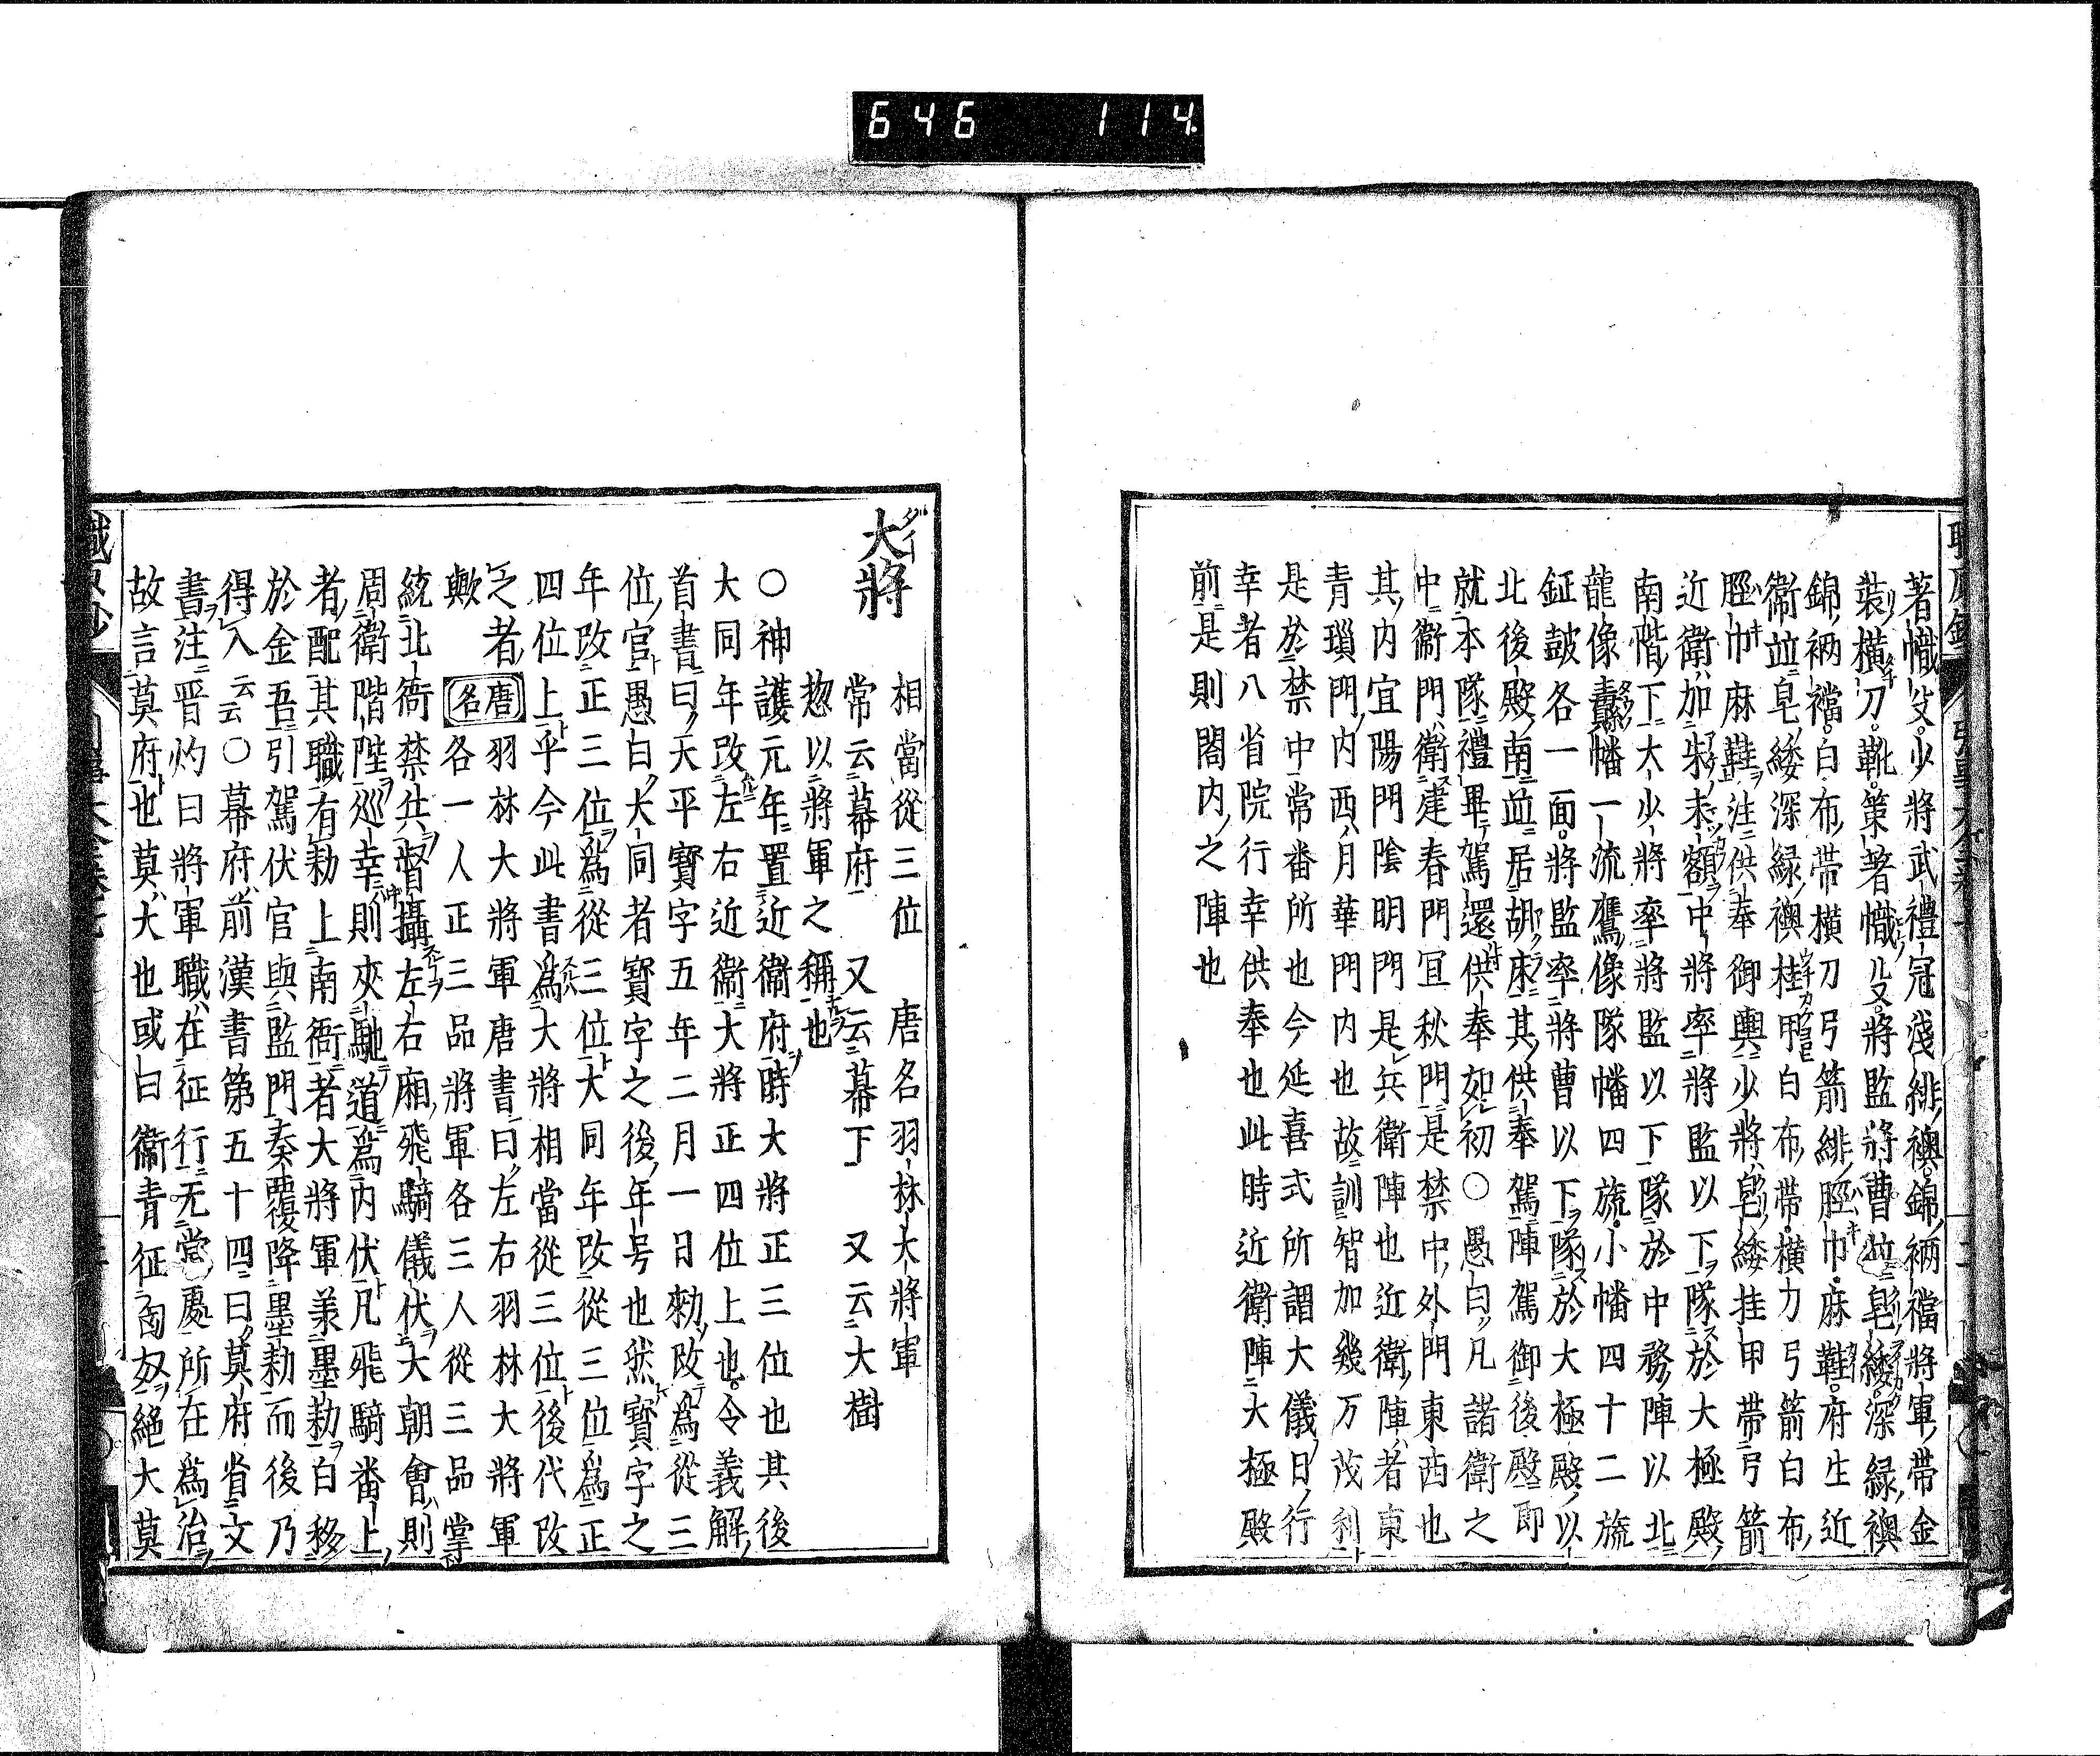 646 114
著幟殳少將武禮冠淺緋襖錦裲襠將軍帶金
裝橫刀靴策著幟殳將監將曹並皂緌深緑襖
錦裲襠白布帶橫刀弓箭緋脛巾麻鞋府生近
衞並皂緌深緑襖桂甲白布帶橫刀弓箭白布
脛巾麻鞋注供奉御輿少將皂緌挂甲帶弓箭
近衛加朱末額中將率將監以下隊於大極殿
南階下大少將率將監以下隊於中務陣以北
龍像纛幡一流鷹像隊幡四旒小幡四十二旒
鉦皷各一面將監率將曹以下隊於大極殿以
北後殿南並居胡床其供奉駕陣駕御後殿即
就本隊禮畢駕還供奉如初○愚曰凡諸衛之
中衞門衛建春門宜秋門是禁中外門東西也
其内宜陽門陰明門是兵衛陣也近衛陣者東
青瑣門内西月華門内也故訓智加幾万茂利
是於禁中常番所也今延喜式所謂大儀日行
幸者八省院行幸供奉也此時近衛陣大極殿
前是則閤内之陣也
大將
相當從三位 唐名羽林大將軍
常云幕府 又云幕下 又云大樹
惣以將軍之稱也
○神護元年置近衞府時大將正三位也其後
大同年改左右近衞大將正四位上也令義解
首書曰天平寳字五年二月一日勑改爲從三
位官愚白大同者寳字之後年号也然寳字之
年改正三位爲從三位大同年改從三位爲正
四位上乎今此書爲大將相當從三位後代改
之者唐名羽林大將軍唐書曰左右羽林大將軍
歟各一人正三品將軍各三人從三品掌
統北衙禁兵督攝左右廂飛騎儀伏大朝會則
周衛階陛巡幸則夾馳道爲内伏凡飛騎番上
者配其職有勅上南衙者大將軍羕墨勅白移
於金吾引駕伏官與監門奏覆降墨勅而後乃
得入云云○幕府前漢書第五十四曰莫府省文
書注晋灼曰將軍職在征行无常處所在爲治
故言莫府也莫大也或曰衞青征匈奴絶大莫